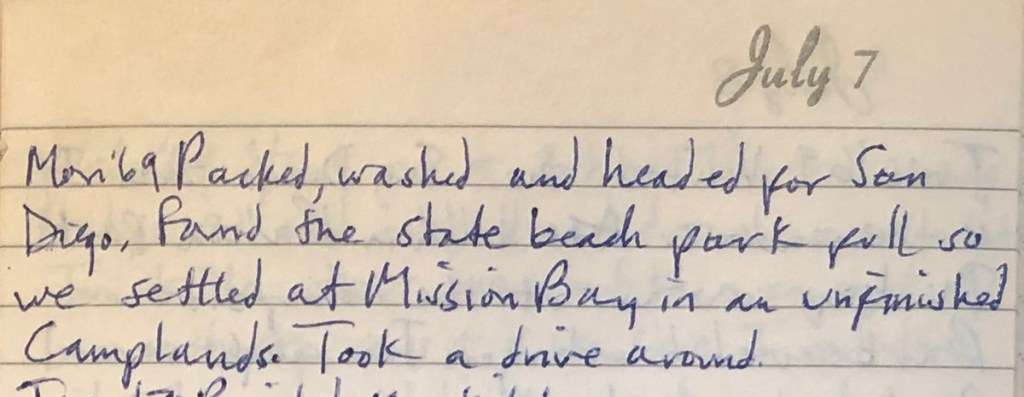 July 7
Mon '69 Packed, washed and headed for San
Diego. Found the state beach park full so
we settled at Mission Bay in an unfinished
Camplands. Took a drive around.